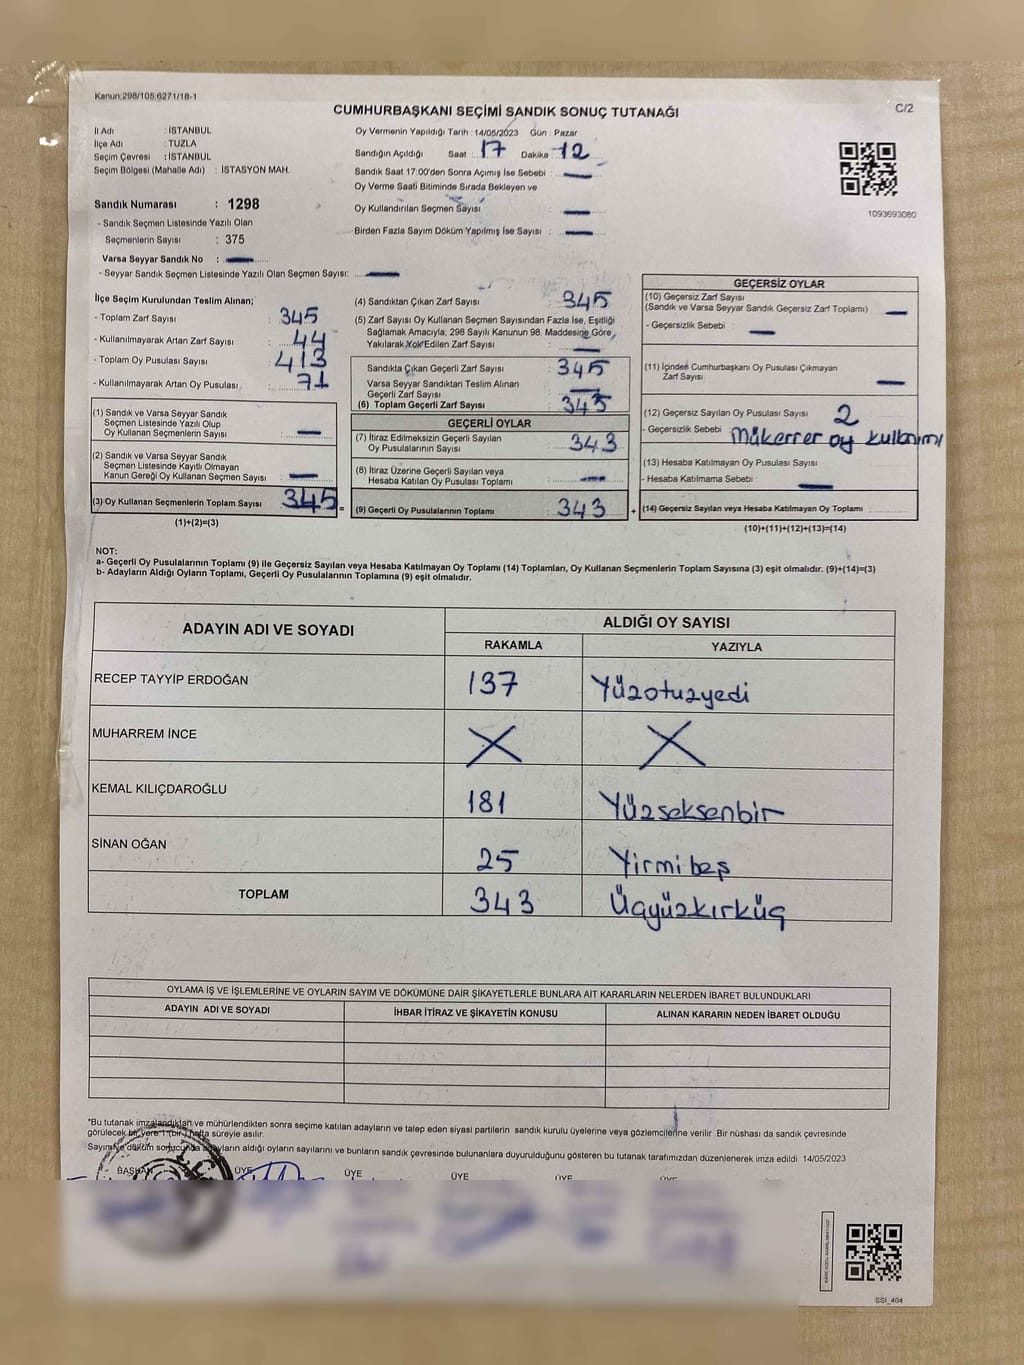 Kanun:298/105;6271/18-1
C/2
CUMHURBAŞKANI SEÇİMİ SANDIK SONUÇ TUTANAĞI
İl Adı : İSTANBUL
İlçe Adı : TUZLA
Seçim Çevresi : İSTANBUL
Seçim Bölgesi (Mahalle Adı) : İSTASYON MAH.
Sandık Numarası : 1298
- Sandık Seçmen Listesinde Yazılı Olan
Seçmenlerin Sayısı : 375
Varsa Seyyar Sandık No : —
- Seyyar Sandık Seçmen Listesinde Yazılı Olan Seçmen Sayısı: —
Oy Vermenin Yapıldığı Tarih : 14/05/2023 Gün : Pazar
Sandığın Açıldığı Saat : 17 Dakika : 12
Sandık Saat 17:00'den Sonra Açımış İse Sebebi : —
Oy Verme Saati Bitiminde Sırada Bekleyen ve
Oy Kullandırılan Seçmen Sayısı —
Birden Fazla Sayım Döküm Yapılmış İse Sayısı : —
1093693080
İlçe Seçim Kurulundan Teslim Alınan;
- Toplam Zarf Sayısı : 345
- Kullanılmayarak Artan Zarf Sayısı : 44
- Toplam Oy Pusulası Sayısı : 413
- Kullanılmayarak Artan Oy Pusulası : 71
(1) Sandık ve Varsa Seyyar Sandık
Seçmen Listesinde Yazılı Olup
Oy Kullanan Seçmenlerin Sayısı : —
(2) Sandık ve Varsa Seyyar Sandık
Seçmen Listesinde Kayıtlı Olmayan
Kanun Gereği Oy Kullanan Seçmen Sayısı : —
(3) Oy Kullanan Seçmenlerin Toplam Sayısı : 345 =
(1)+(2)=(3)
(4) Sandıktan Çıkan Zarf Sayısı 345
(5) Zarf Sayısı Oy Kullanan Seçmen Sayısından Fazla İse, Eşitliği
Sağlamak Amacıyla, 298 Sayılı Kanunun 98. Maddesine Göre,
Yakılarak Yok Edilen Zarf Sayısı : —
Sandıkta Çıkan Geçerli Zarf Sayısı : 345
Varsa Seyyar Sandıktan Teslim Alınan
Geçerli Zarf Sayısı : —
(6) Toplam Geçerli Zarf Sayısı : 345
GEÇERLİ OYLAR
(7) İtiraz Edilmeksizin Geçerli Sayılan
Oy Pusulalarının Sayısı : 343
(8) İtiraz Üzerine Geçerli Sayılan veya
Hesaba Katılan Oy Pusulası Toplamı : —
(9) Geçerli Oy Pusulalarının Toplamı : 343 +
GEÇERSİZ OYLAR
(10) Geçersiz Zarf Sayısı
(Sandık ve Varsa Seyyar Sandık Geçersiz Zarf Toplamı) : —
- Geçersizlik Sebebi : —
(11) İçinden Cumhurbaşkanı Oy Pusulası Çıkmayan
Zarf Sayısı : —
(12) Geçersiz Sayılan Oy Pusulası Sayısı : 2
- Geçersizlik Sebebi : Mükerrer oy kullanımı
(13) Hesaba Katılmayan Oy Pusulası Sayısı
- Hesaba Katılmama Sebebi : —
(14) Geçersiz Sayılan veya Hesaba Katılmayan Oy Toplamı :
(10)+(11)+(12)+(13)=(14)
NOT:
a- Geçerli Oy Pusulalarının Toplamı (9) ile Geçersiz Sayılan veya Hesaba Katılmayan Oy Toplamı (14) Toplamları, Oy Kullanan Seçmenlerin Toplam Sayısına (3) eşit olmalıdır. (9)+(14)=(3)
b- Adayların Aldığı Oyların Toplamı, Geçerli Oy Pusulalarının Toplamına (9) eşit olmalıdır.
ADAYIN ADI VE SOYADI ALDIĞI OY SAYISI
RAKAMLA YAZIYLA
RECEP TAYYİP ERDOĞAN 137 Yüzotuzyedi
MUHARREM İNCE X X
KEMAL KILIÇDAROĞLU 181 Yüzseksenbir
SİNAN OĞAN 25 Yirmi beş
TOPLAM 343 Üçyüzkırküç
OYLAMA İŞ VE İŞLEMLERİNE VE OYLARIN SAYIM VE DÖKÜMÜNE DAİR ŞİKAYETLERLE BUNLARA AİT KARARLARIN NELERDEN İBARET BULUNDUKLARI
ADAYIN ADI VE SOYADI İHBAR İTİRAZ VE ŞİKAYETİN KONUSU ALINAN KARARIN NEDEN İBARET OLDUĞU
*Bu tutanak imzalandıktan ve mühürlendikten sonra seçime katılan adayların ve talep eden siyasi partilerin sandık kurulu üyelerine veya gözlemcilerine verilir .Bir nüshası da sandık çevresinde
görülecek bir yere 1 (bir ) hafta süreyle asılır.
Sayım ve döküm sonucunda adayların aldığı oyların sayılarını ve bunların sandık çevresinde bulunanlara duyurulduğunu gösteren bu tutanak tarafımızdan düzenlenerek imza edildi 14/05/2023
BAŞKAN ÜYE ÜYE ÜYE ÜYE ÜYE
SSİ_404